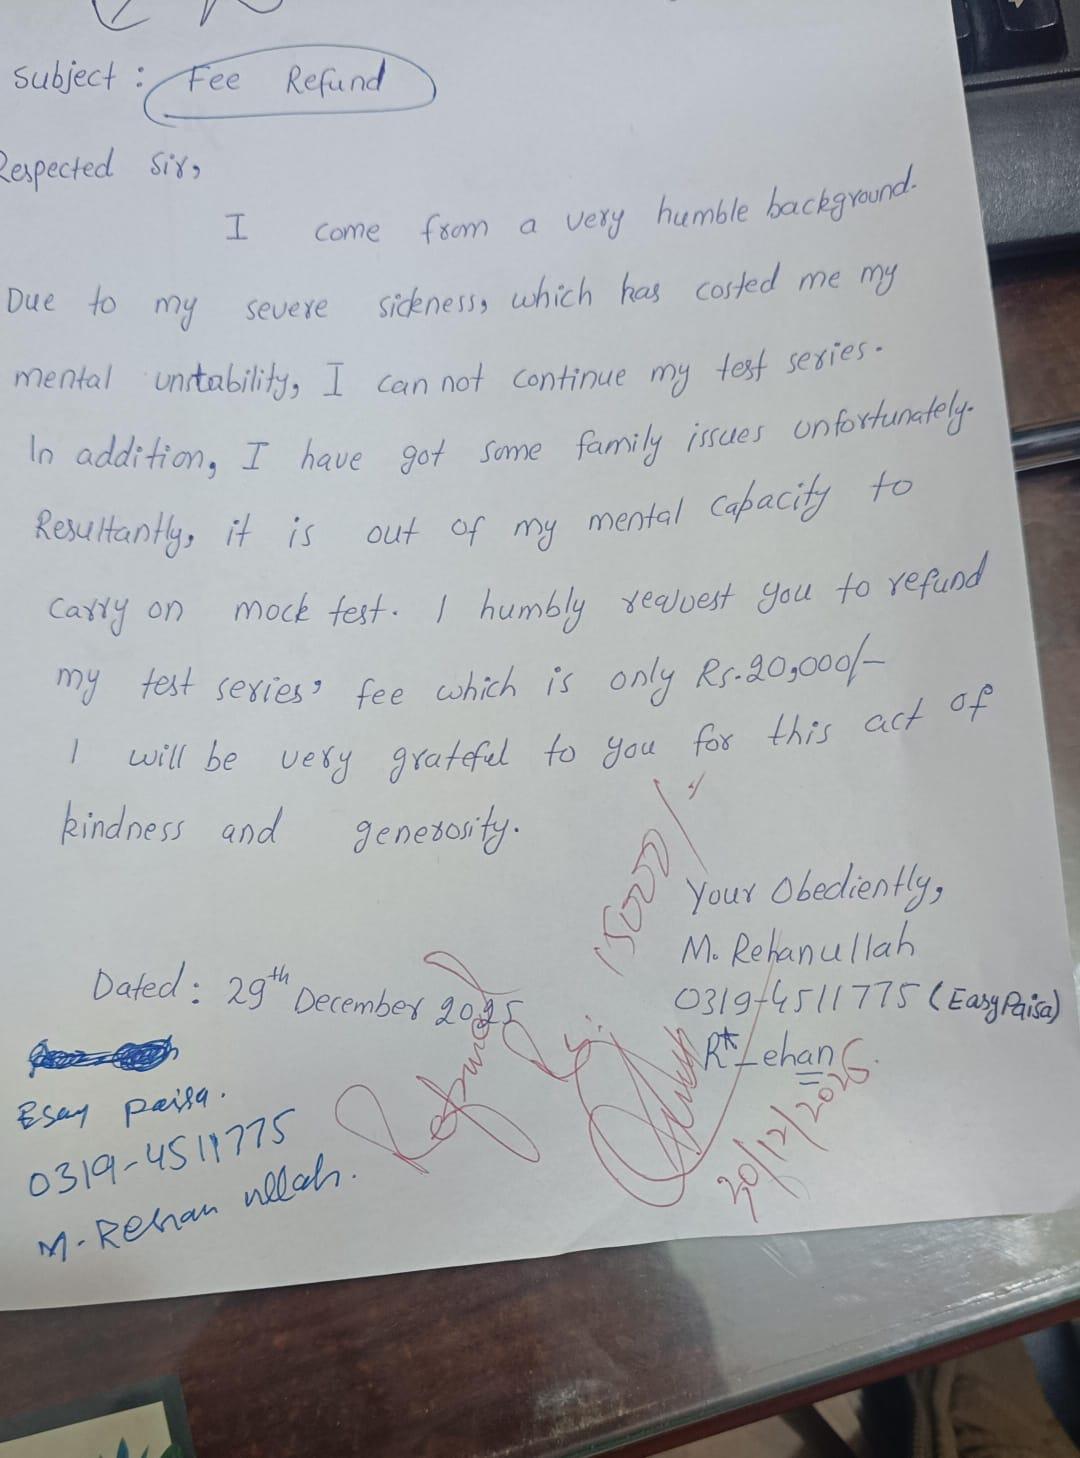 Subject : Fee Refund
Respected Sir,
I come from a very humble background.
Due to my severe sickness, which has costed me my
mental unstability, I can not continue my test series.
In addition, I have got some family issues unfortunately.
Resultantly, it is out of my mental capacity to
carry on mock test. I humbly request you to refund
my test series' fee which is only Rs.20,000/-
I will be very grateful to you for this act of
kindness and generosity.
Your Obediently,
M. Rehanullah
0319-4511775 (EasyPaisa)
R*_ehan
Dated : 29th December 2025
Esay paisa.
0319-4511775
M. Rehan ullah.
Refund Rs: 15000/-
30/12/2025